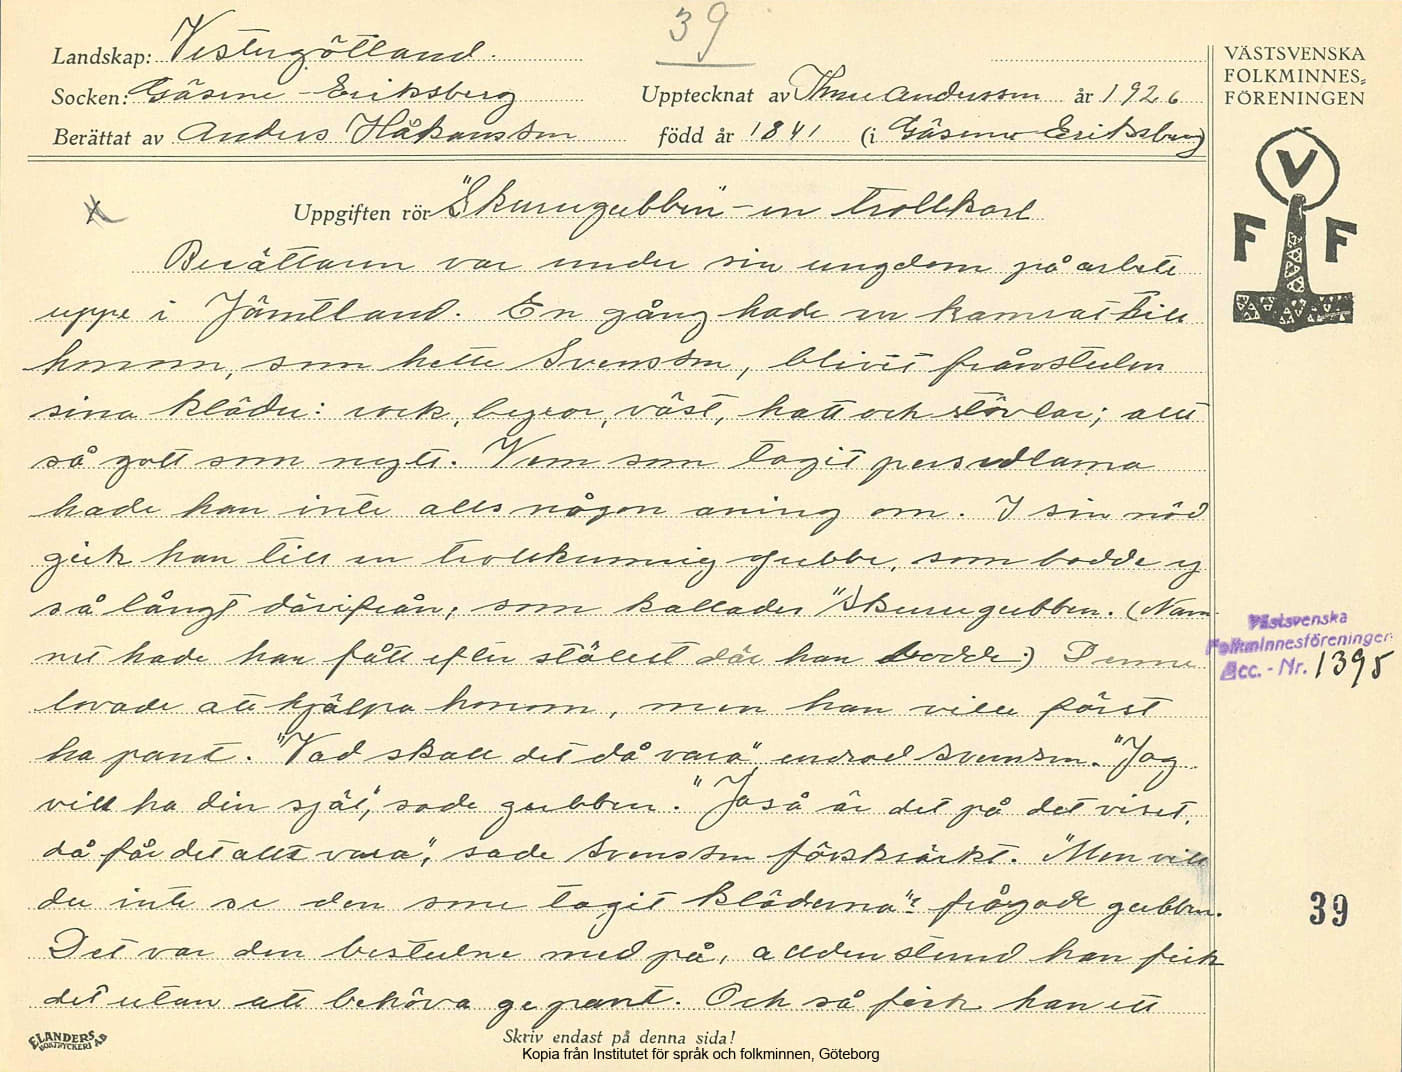 39
Landskap: Vestergötland.
VÄSTSVENSKA
FOLKMINNES=
FÖRENINGEN
Socken: Gäsene - Eriksberg
Upptecknat av Thure Andersson år 1926
Berättat av Anders Håkansson född år 1841 (i Gäsene Eriksberg)
V
F F
x
Uppgiften rör "Skurugubben" - en trollkarl
Berättaren var under sin ungdom på arbete
uppe i Jämtland. En gång hade en kamrat till
honom, som hette Svensson, blivit frånstulen
sina kläder: rock, byxor, väst, hatt och stövlar; allt
så gott som nytt. Vem som tagit persedlarna
hade han inte alls någon aning om. I sin nöd
gick han till en trollkunnig gubbe, som bodde ej
så långt därifrån, som kallades "Skurugubben. (Nam-
net hade han fått efter stället där han bodde) Denne
lovade att hjälpa honom, men han ville först
ha pant. "Vad skall det då vara" undrad Svensson. "Jag
vill ha din själ", sade gubben. "Jaså är det på det viset,
då får det allt vara", sade Svensson förskräckt. "Men vill
du inte se den som tagit kläderna"? frågade gubben.
Det var den bestulne med på, allden stund han fick
det utan att behöva ge pant. Och så fick han ett
Västsvenska
Folkminnesföreningen
Acc. - Nr. 1395
39
ELANDERS
BOKTRYCKERI AB
Skriv endast på denna sida!
Kopia från Institutet för språk och folkminnen, Göteborg